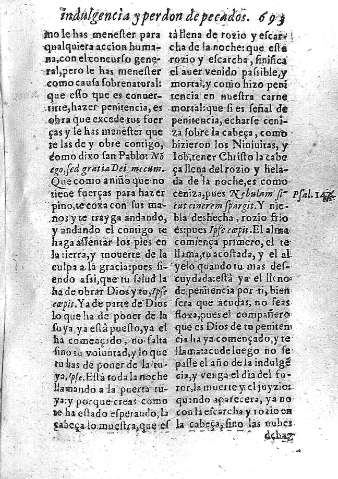 indulgencia y perdon de pecados. 693
no le has menester para
qualquiera accion huma-
na, con el concurso gene-
ral, pero le has menester
como causa sobrenatural:
que esto que es conuer-
tirte, hazer penitencia, es
obra que excede tus fuer-
ças y le has menester que
te las de y obre contigo,
como dixo san Pablo: Nõ
ego, sed gratia Dei mecum.
Que como a niño que no
tiene fuerças para hazer
pino, te coxa con sus ma-
nos y te trayga andando,
y andando el contigo te
haga assentar los pies en
la tierra, y mouerte de la
culpa a la gracia: pues si-
endo assi, que tu salud la
ha de obrar Dios y tu, Ipse
cœpit. Ya de parte de Dios
lo que ha de poner de la
suya, ya està puesto, ya el
ha começado, no falta
sino tu voluntad, y lo que
tu has de poner de la tu-
ya, Ipse. Està toda la noche
llamando a la puerta tu-
ya: y porque creas como
te ha estado esperando, la
cabeça lo muestra, que es
tà llena de rozio y escar-
cha de la noche: que este
rozio y escarcha, sinifica
el auer venido passible, y
mortal: y como hizo peni
tencia en nuestra carne
mortal: que si es señal de
penitencia, echarse ceni-
za sobre la cabeça, como
hizieron los Niniuitas, y
Iob, tener Christo la cabe
ça llena del rozio y hela-
da de la noche, es como
ceniza, pues Nebulam si-
cut cinerem spargit. Y nie-
bla deshecha, rozio frio
es: pues Ipse cœpit. El alma
comença primero, el te
llama, tu acostada, y el al
velo quando tu mas des-
cuydada: està ya el lleno
de penitencia por ti, bien
sera que acudas, no seas
floxa, pues el compañero
que es Dios de tu peniten
cia ha ya començado, y te
llama: acude luego no se
passe el año de la indulgẽ
cia, y venga el dia del fu-
ror, la muerte y el juyzio:
quando aparecera, ya no
con la escarcha y rozio en
la cabeça, sino las nubes
Psal. 147.
debax